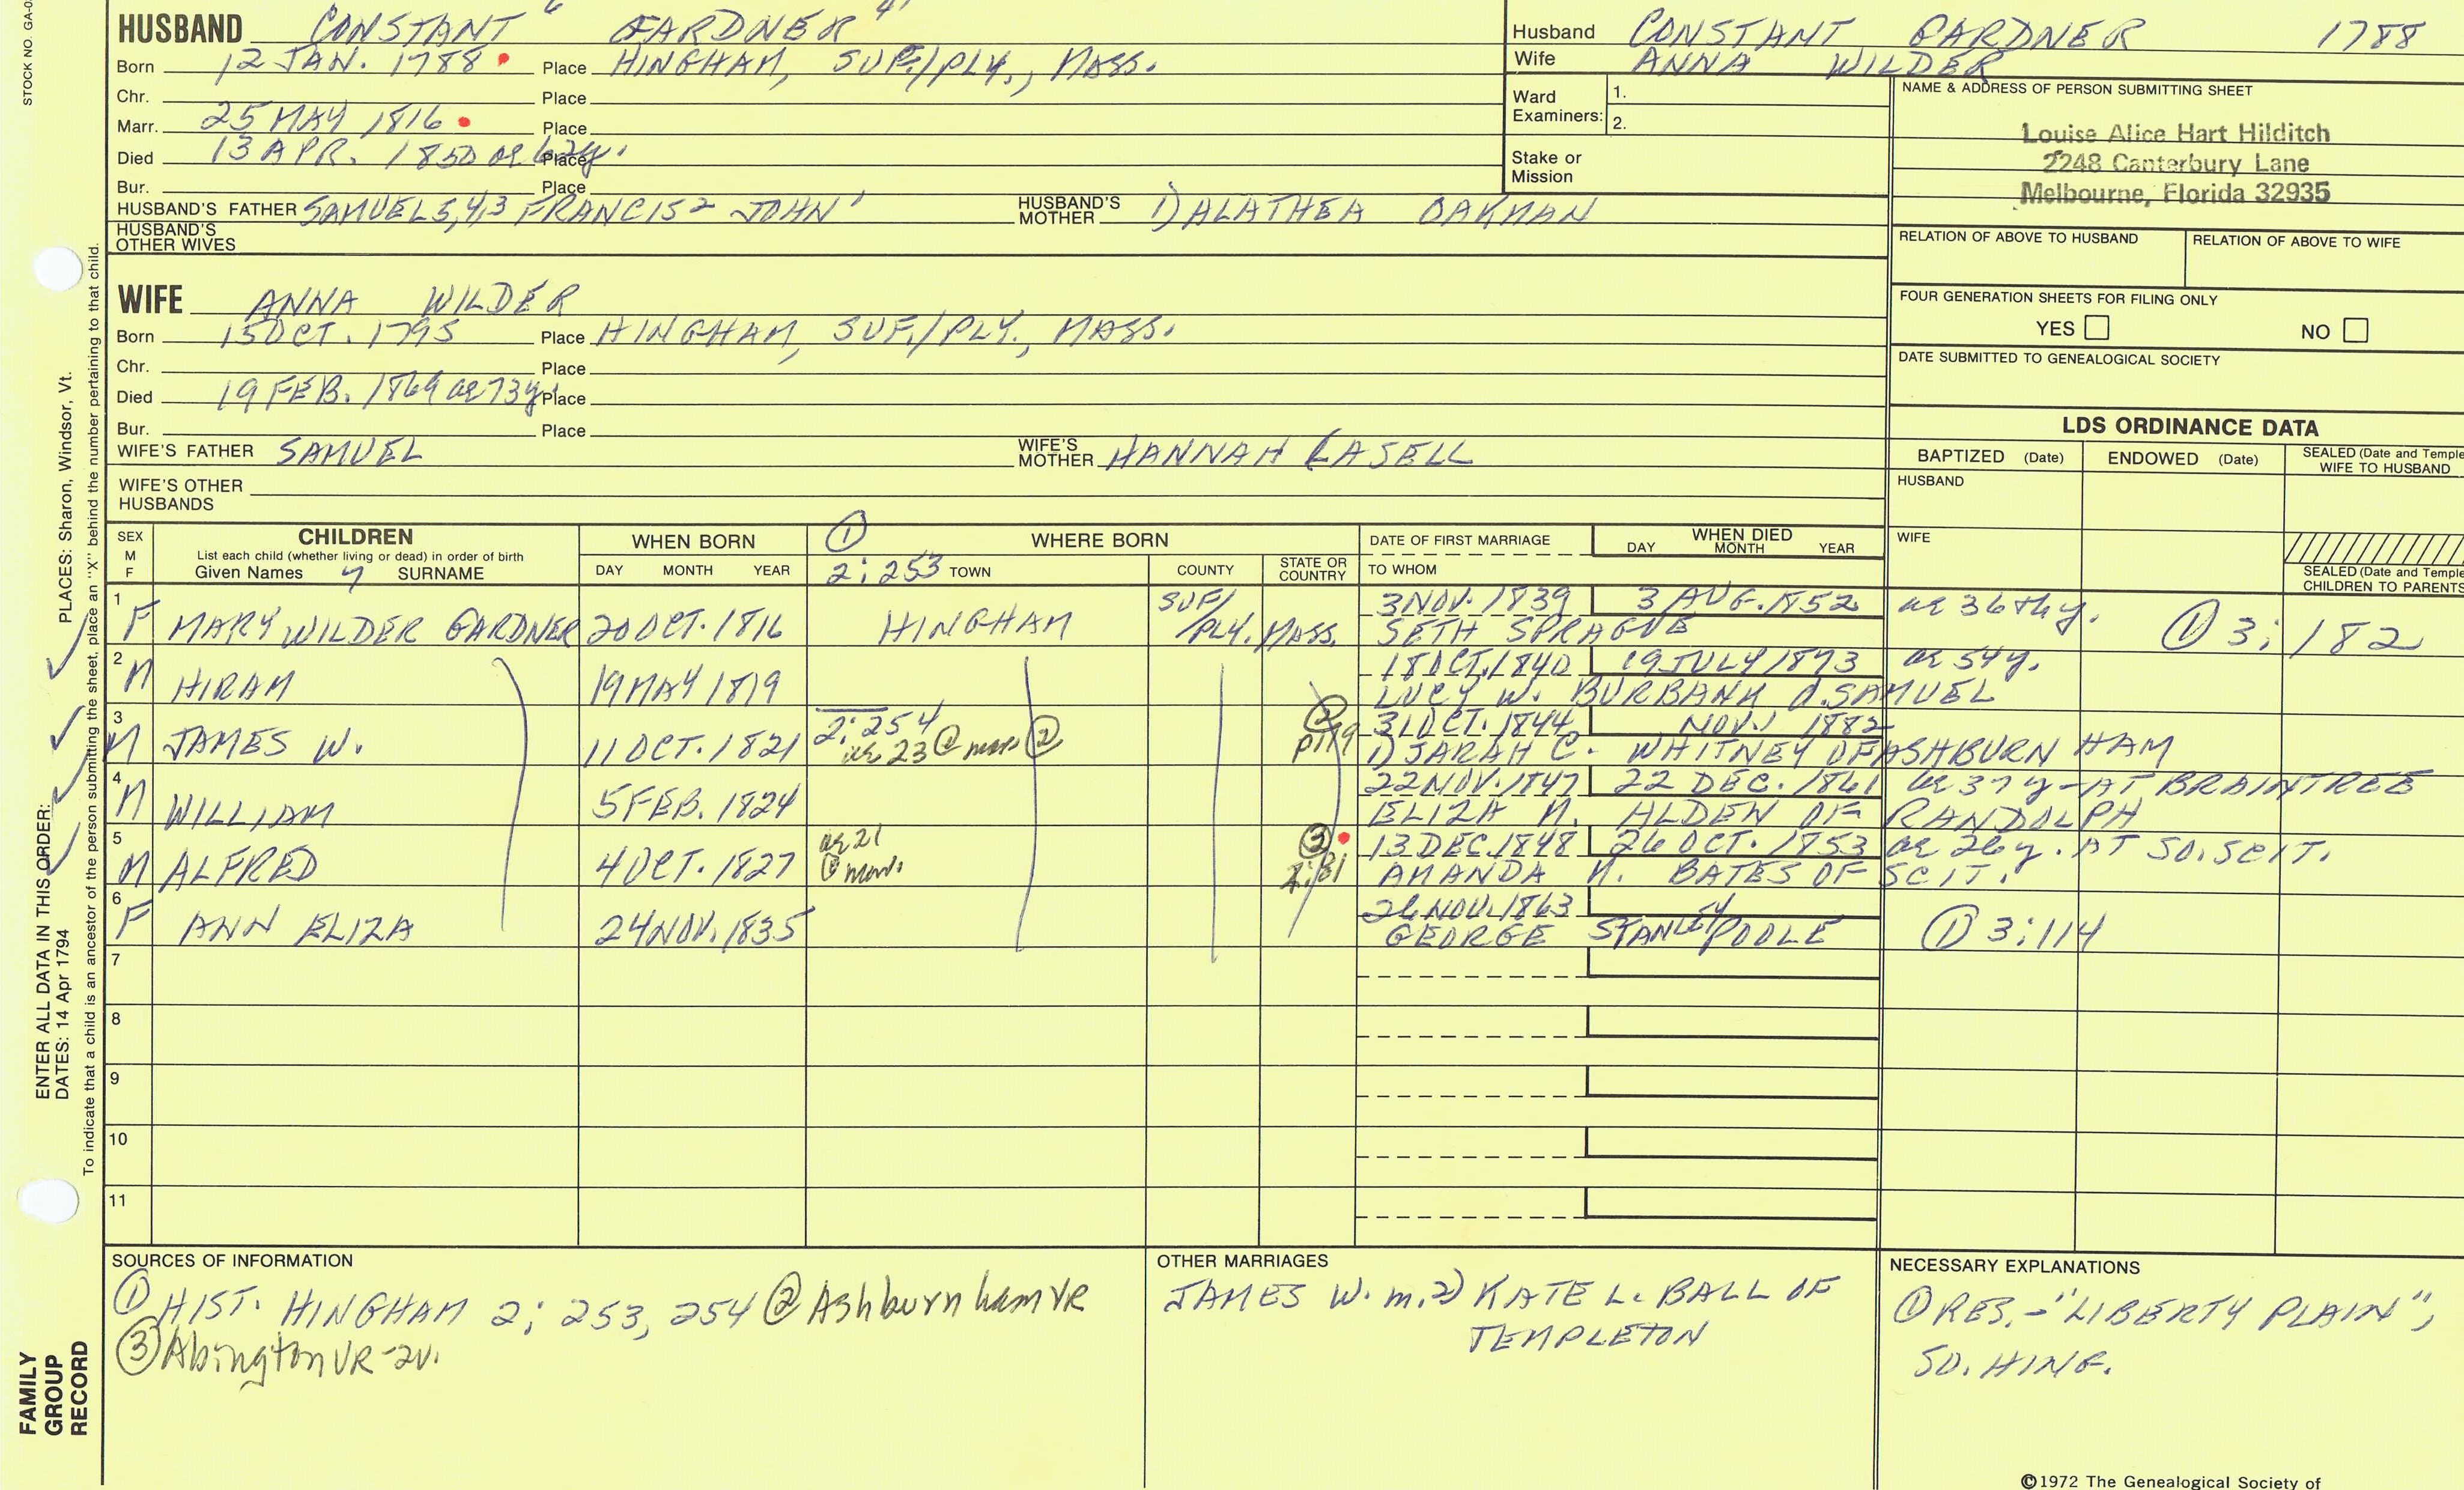 STOCK NO. GA-0
HUSBAND CONSTANT GARDNER
Born 12 JAN. 1788 Place HINGHAM, SUF./PLY., MASS.
Chr. Place
Marr. 25 MAY 1816 Place
Died 13 APR. 1850 ae 62y. Place
Bur. Place
HUSBAND'S FATHER SAMUEL 5,4,3 FRANCIS 2 JOHN 1 HUSBAND'S MOTHER 1) ALATHEA OAKMAN
HUSBAND'S OTHER WIVES
WIFE ANNA WILDER
Born 15 OCT. 1795 Place HINGHAM, SUF./PLY., MASS.
Chr. Place
Died 19 FEB. 1869 ae 73y. Place
Bur. Place
WIFE'S FATHER SAMUEL WIFE'S MOTHER HANNAH CASELL
WIFE'S OTHER HUSBANDS
Husband CONSTANT GARDNER 1788
Wife ANNA WILDER
Ward Examiners: 1.
2.
Stake or Mission
NAME & ADDRESS OF PERSON SUBMITTING SHEET
Louise Alice Hart Hilditch
2248 Canterbury Lane
Melbourne, Florida 32935
RELATION OF ABOVE TO HUSBAND RELATION OF ABOVE TO WIFE
FOUR GENERATION SHEETS FOR FILING ONLY
YES NO
DATE SUBMITTED TO GENEALOGICAL SOCIETY
LDS ORDINANCE DATA
BAPTIZED (Date) ENDOWED (Date) SEALED (Date and Temple
WIFE TO HUSBAND
HUSBAND
WIFE
SEALED (Date and Temple
CHILDREN TO PARENTS
SEX M F
CHILDREN
List each child (whether living or dead) in order of birth
Given Names 7 SURNAME
WHEN BORN
DAY MONTH YEAR
① WHERE BORN
2:253 TOWN COUNTY STATE OR COUNTRY
DATE OF FIRST MARRIAGE
TO WHOM
WHEN DIED
DAY MONTH YEAR
1 F MARY WILDER GARDNER 20 OCT. 1816 HINGHAM SUF/ /PLY. MASS. 3 NOV. 1839 3 AUG. 1852 ae 36thy. ① 3:182
SETH SPRAGUE
2 M HIRAM 19 MAY 1819 18 OCT. 1840 19 JULY 1873 ae 54y.
LUCY W. BURBANK d. SAMUEL
3 M JAMES W. 11 OCT. 1821 2:254 ae 23 @ mar. ② ② p119 31 OCT. 1844 NOV. 1 1882
1) SARAH C. WHITNEY OF ASHBURNHAM
4 M WILLIAM 5 FEB. 1824 22 NOV. 1847 22 DEC. 1861 ae 37y - AT BRAINTREE
ELIZA M. ALDEN OF RANDOLPH
5 M ALFRED 4 OCT. 1827 ae 21 @ mar. ③ 2:81 13 DEC. 1848 26 OCT. 1853 ae 26y. AT SO. SCIT.
AMANDA M. BATES OF SCIT.
6 F ANN ELIZA 24 NOV. 1835 26 NOV. 1863
GEORGE STANLEY POOLE ① 3:114
7
8
9
10
11
SOURCES OF INFORMATION
① HIST. HINGHAM 2; 253, 254 ② Ashburnham VR
③ Abington VR-2v.
OTHER MARRIAGES
JAMES W. m. 2) KATE L. BALL OF
TEMPLETON
NECESSARY EXPLANATIONS
① RES. - "LIBERTY PLAIN",
SO. HING.
©1972 The Genealogical Society of
ENTER ALL DATA IN THIS ORDER: PLACES: Sharon, Windsor, Vt.
DATES: 14 Apr 1794
To indicate that a child is an ancestor of the person submitting the sheet, place an "X" behind the number pertaining to that child.
FAMILY
GROUP
RECORD